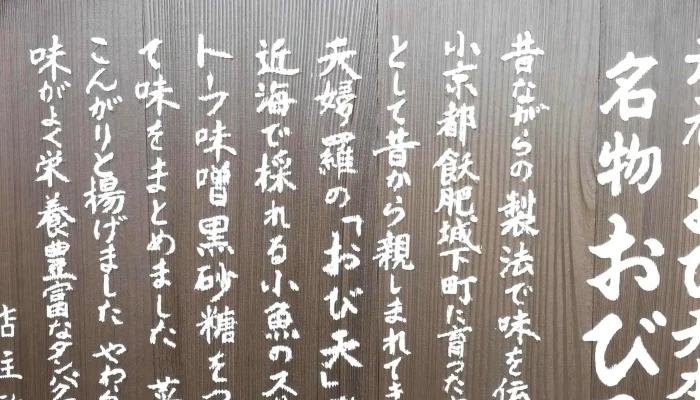 名物おび
昔ながらの製法で味を伝
小京都飫肥城下町に育った
として昔から親しまれてき
天婦羅の「おび天」
近海で採れる小魚のス
トーフ味噌黒砂糖を
て味をまとめました 菜
こんがりと揚げました やわら
味がよく栄養豊富なタンパク
店主